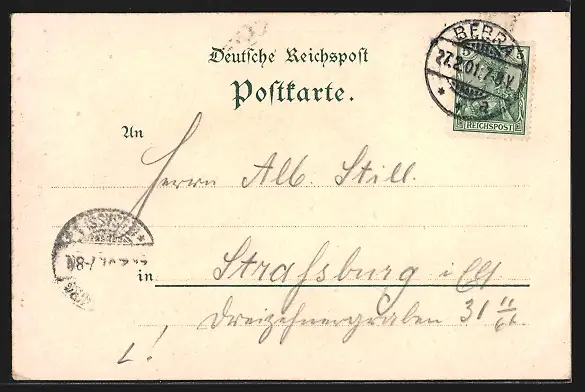 BEBRA
27.2.01.7-8V.
* a
REICHSPOST
Deutsche Reichspost
Postkarte.
An
Herrn Alb. Still.
7-8
in Straßburg i/Els
Dreizehnergraben 31 II